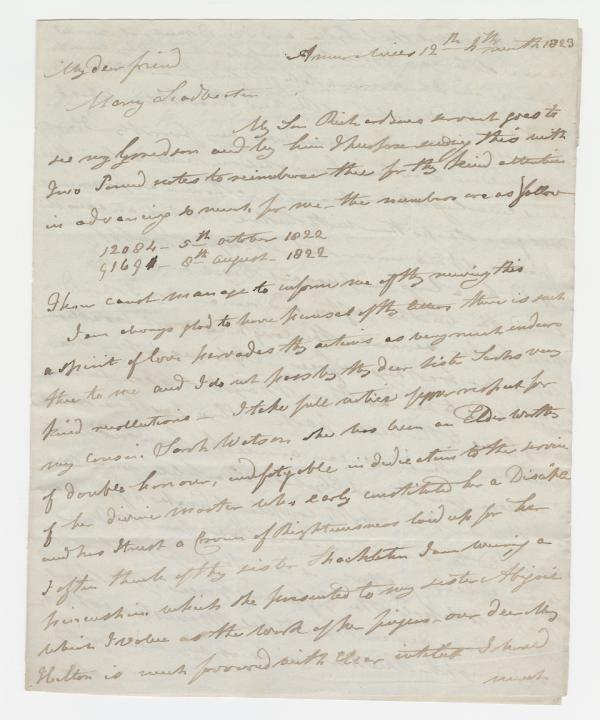 Anner Mills 12th 4th month 1823
My dear friend
Mary Leadbeater
My Son Richardsons servant goes to
see my Grandson and by him I purpose sending this with
Two Pound notes to reimburse thee for thy kind attention
in advancing so much for me – the numbers are as follow
12084 – 5th october 1822
91694 – 8th august 1822
Thou canst manage to inform me of thy receiving this
I am always glad to have perusal of thy letters there is such
a spirit of love pervades thy actions as very much endears
thee to me and I do not pass by thy dear sister Sarahs very
kind recollections – I take full notice of your respect for
my cousin Sarah Watson she has been an Elder worthy
of double honour, indefatigable in dedication to the service
of her divine master who early constituted her a Disciple
and has I trust a Crown of Righteousness laid up for her
I often think of thy sister Shackleton I am wearing a
pincushion which she presented to my sister Abigail
which I value as the work of her fingers – our dear My
Hilton is much favoured with clear intellect I should
much